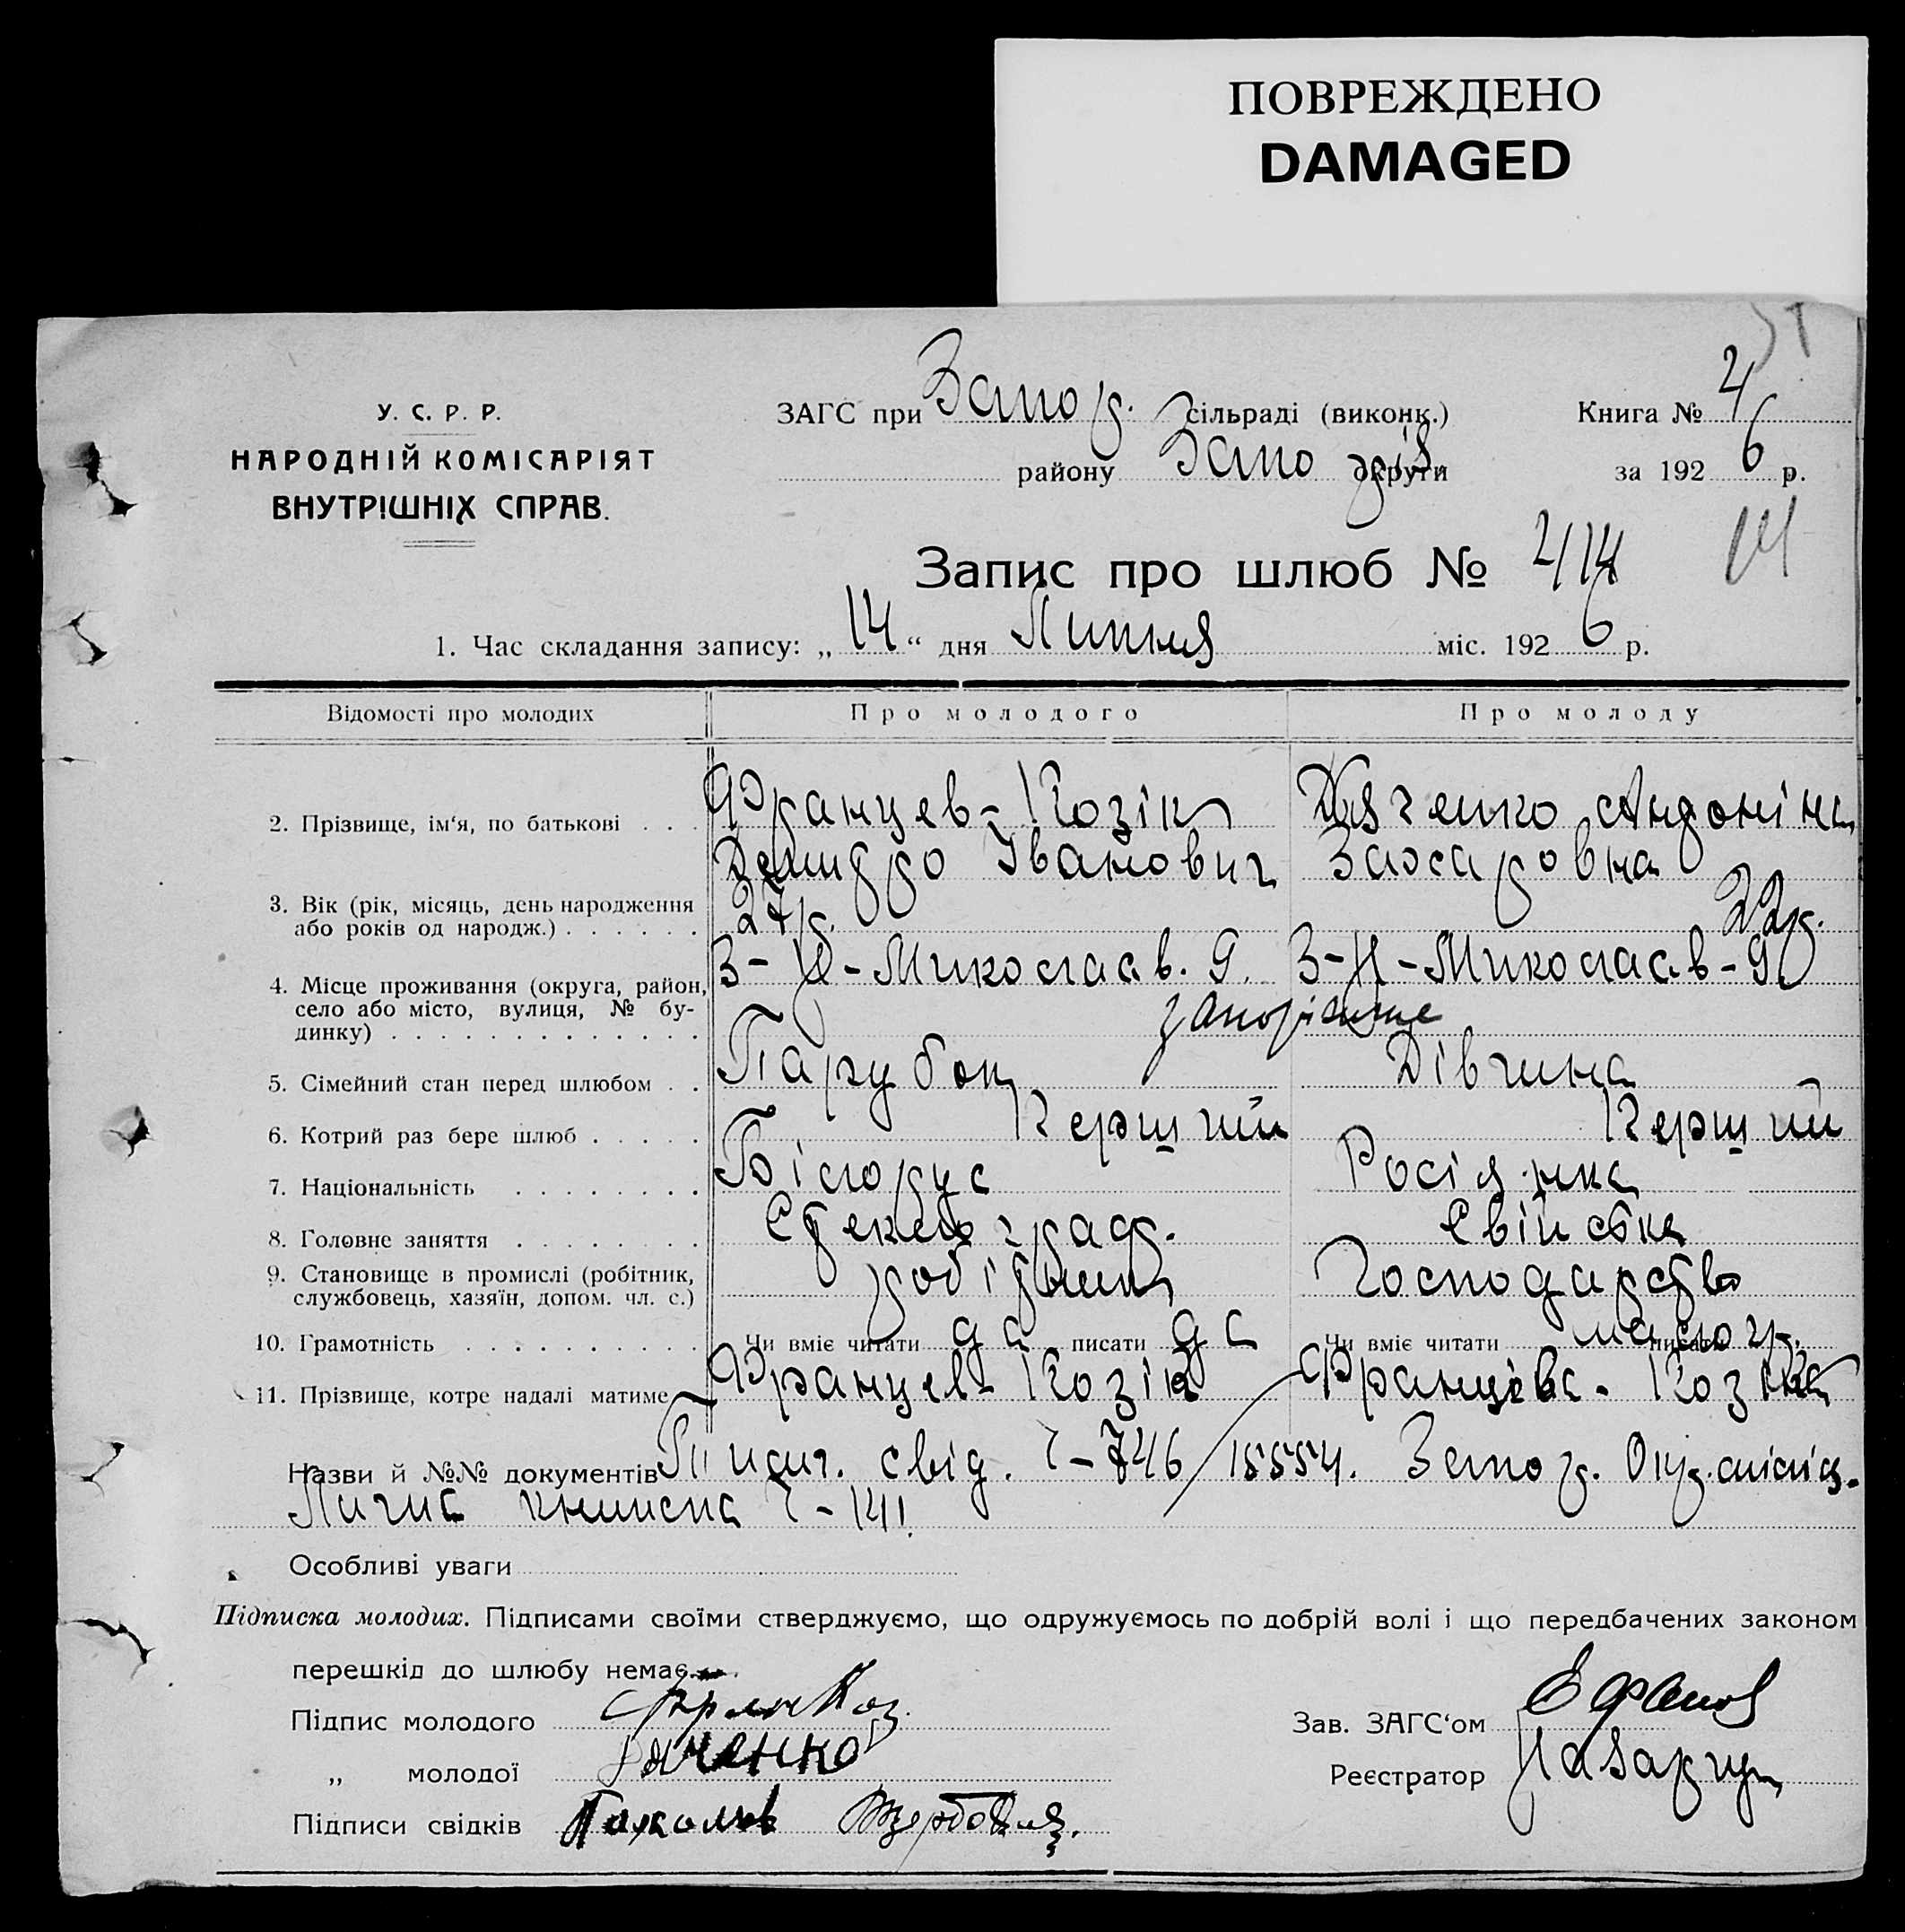 ПОВРЕЖДЕНО
DAMAGED
У. С. Р. Р.
НАРОДНІЙ КОМІСАРІЯТ
ВНУТРІШНІХ СПРАВ.
ЗАГС при Запор. сільраді (виконк.) Книга № 4
району Запо округи за 1926 р.
Запис про шлюб № 414
1. Час складання запису: „14“ дня Липня міс. 1926 р.
Відомості про молодих Про молодого Про молоду
2. Прізвище, ім‘я, по батькові . . . Францев-Козік Дяченко Антоніна
Дмитро Іванович Захаровна
3. Вік (рік, місяць, день народження
або років од народж.) . . . . . . 27 р. 22 р.
4. Місце проживання (округа, район,
село або місто, вулиця, № бу-
динку) . . . . . . . . . . . . . З-Н-Миколаєв. 9. З-Н-Миколаєв-9
запоріжже
5. Сімейний стан перед шлюбом . . Парубок Дівчина
6. Котрий раз бере шлюб . . . . . Перший Перший
7. Національність . . . . . . . . Білорус Росіянка
8. Головне заняття . . . . . . . . Свійська
9. Становище в промислі (робітник,
службовець, хазяїн, допом. чл. с.) робітник Господарство
10. Грамотність . . . . . . . . . . Чи вміє читати да писати да Чи вміє читати писати
11. Прізвище, котре надалі матиме Францев-Козік Францева-Козік
Назви й №№ документів свід. Ч-746/15554. Запор. Окр.міліц.
Лична книжка Ч-141
Особливі уваги
Підписка молодих. Підписами своїми стверджуємо, що одружуємось по добрій волі і що передбачених законом
перешкід до шлюбу немає.
Підпис молодого ФранКоз.
„ молодої Дяченко
Підписи свідків
Зав. ЗАГС‘ом
Реєстратор